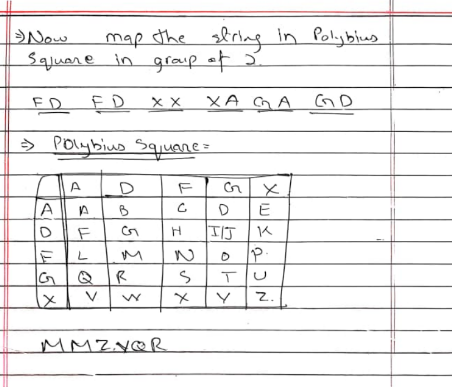 ⇒ Now map the string in Polybius
Square in group of 2.
FD FD XX XA GA GD
⇒ Polybius Square =
A D F G X
A A B C D E
D F G H I/J K
F L M N O P.
G Q R S T U
X V W X Y Z.
MMZVQR